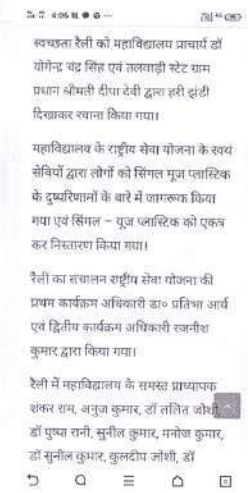 4:06
स्वच्छता रैली को महाविद्यालय प्राचार्य डॉ
योगेन्द्र चंद्र सिंह एवं तलवाड़ी स्टेट ग्राम
प्रधान श्रीमती दीपा देवी द्वारा हरी झंडी
दिखाकर रवाना किया गया।
महाविद्यालय के राष्ट्रीय सेवा योजना के स्वयं
सेवियों द्वारा लोगों को सिंगल यूज प्लास्टिक
के दुष्परिणामों के बारे में जागरूक किया
गया एवं सिंगल - यूज प्लास्टिक को एकत्र
कर निस्तारण किया गया।
रैली का संचालन राष्ट्रीय सेवा योजना की
प्रथम कार्यक्रम अधिकारी डा० प्रतिभा आर्य
एवं द्वितीय कार्यक्रम अधिकारी रजनीश
कुमार द्वारा किया गया।
रैली में महाविद्यालय के समस्त प्राध्यापक
शंकर राम, अनुज कुमार, डॉ ललित जोशी,
डॉ पुष्पा रानी, सुनील कुमार, मनोज कुमार,
डॉ सुनील कुमार, कुलदीप जोशी, डॉ